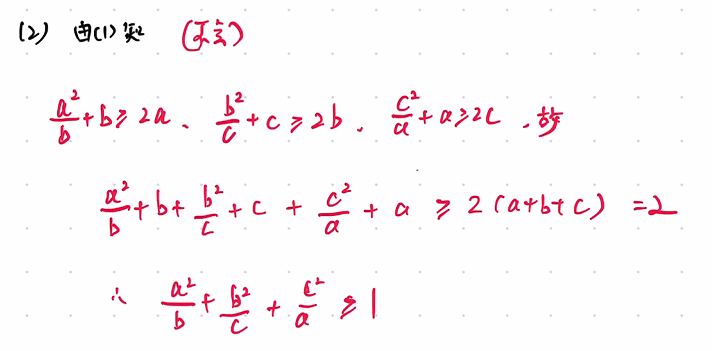 (2) 由(1)知 (不会)
a²/b + b ≥ 2a、b²/c + c ≥ 2b、c²/a + a ≥ 2c,故
a²/b + b + b²/c + c + c²/a + a ≥ 2(a+b+c) = 2
∴ a²/b + b²/c + c²/a ≥ 1